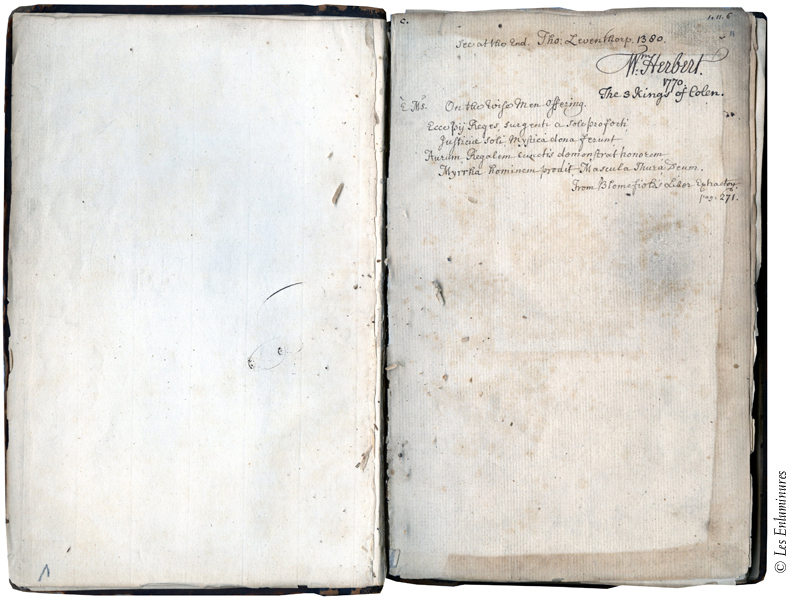 C. 1. 11. 6
See at the End. Tho: Leventhorp. 1380.
Wm Herbert.
1770.
The 3 Kings of Colen.
E Ms. On the Wise Men offering.
Ecce pij Reges, surgenti a Sole profecti
Justiciæ soli Mystica dona ferunt
Aurum Regalem cunctis demonstrat honorem
Myrrha hominem prodit Mascula Thura Deum.
From Blomefield's Liber Extractor.
pag. 271.
© Les Enluminures